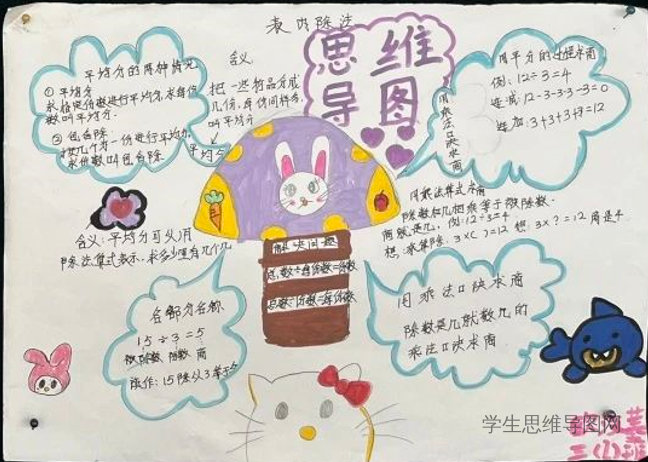 表内除法
思维
导图
平均分的两种情况
① 平均分
按指定份数进行平均分,求每份
数叫平均分.
② 包含除
按几个为一份进行平均分,
求份数叫包含除
含义
把一些物品分成
几份,每份同样多,
叫平均分
平均分
用平均分的过程求商
例: 12÷3=4
连减: 12-3-3-3-3=0
连加: 3+3+3+3=12
用乘法口诀求商
用乘法算式求商
除数和几相乘等于被除数.
商就是几, 例: 12÷3=4
想: 求算除. 3×( )=12 想 3×?=12 商是4
含义: 平均分可以用
除法算式表示, 求多少里有几个几
解决问题
总数÷每份数=份数
总数÷份数=每份数
各部分名称
15÷3=5
被除数 除数 商
读作: 15除以3等于5
用乘法口诀求商
除数是几就数几的
乘法口诀求商
学生思维导图网
三(1)班